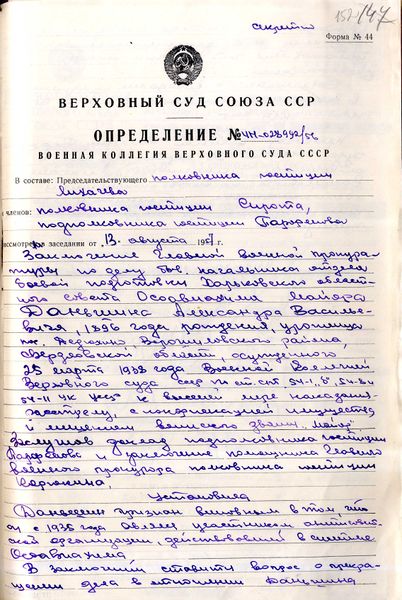 секретно
152 147
Форма № 44
ВЕРХОВНЫЙ СУД СОЮЗА ССР
ОПРЕДЕЛЕНИЕ № 4н-028992/56
ВОЕННАЯ КОЛЛЕГИЯ ВЕРХОВНОГО СУДА СССР
В составе: Председательствующего полковника юстиции
Лихачева
членов: полковника юстиции Сирота,
подполковника юстиции
рассмотрев заседании от 13 августа 1957 г.
Заключение Главной военной прокура-
туры по делу быв. начальника отдела
боевой подготовки Харьковского област-
ного совета Осоавиахима майора
Александра Василье-
вича, 1896 года рождения, уроженца
пос. Ворошиловского района,
Свердловской области, осужденного
25 марта 1938 Военной Коллегией
Верховного суда СССР по ст.ст. 54-1 "б", 54-8 и
54-11 УК УССР к высшей мере наказания
расстрелу, с конфискацией имущества
и лишением воинского звания "майор"
Заслушав доклад подполковника юстиции
и заключение помощника Главного
военного прокурора полковника юстиции
установила
признан виновным в том, что
он с 1936 года являлся участником антисовет-
ской организации, действовавшей в системе
Осоавиахима
В заключении ставится вопрос о прекра-
щении дела в отношении